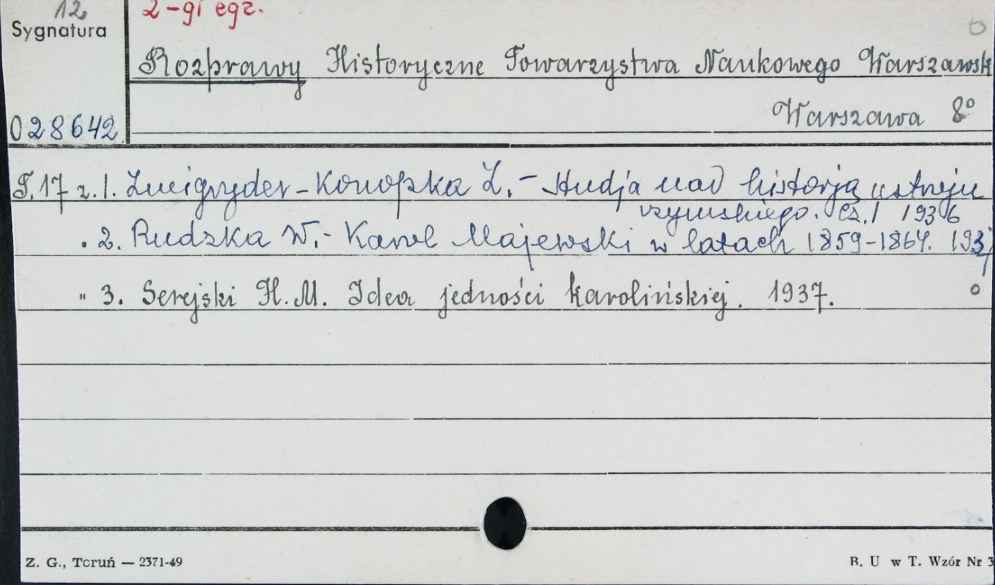 12
2-gi egz.
Sygnatura
Rozprawy Historyczne Towarzystwa Naukowego Warszawsk
Warszawa 8°
028642
T. 17 z. 1. Zmigryder-Konopka Z. - Studja nad historją ustroju
rzymskiego. Cz. I 1936
" 2. Rudzka W. - Karol Majewski w latach 1859-1864. 1937
" 3. Serejski H. M. Idea jedności karolińskiej. 1937.
Z. G., Toruń — 2371-49
B. U w T. Wzór Nr 3